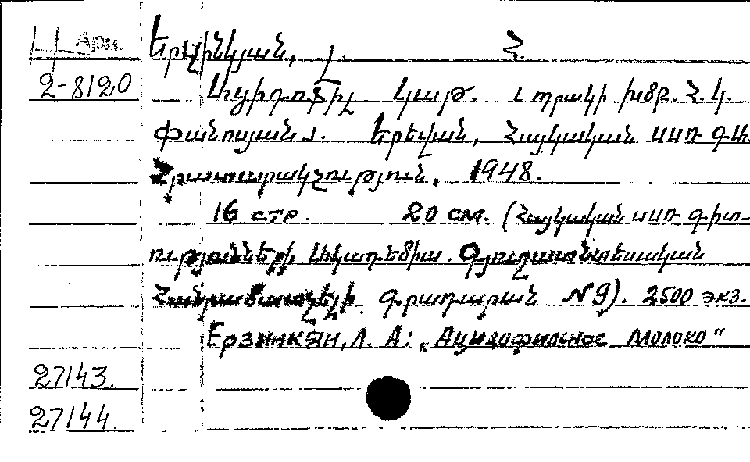 Երզինկյան, Լ. Հ.
2-8120
Ացիդոֆիլ կաթ. և պրակի խմբ. Հ. կ.
Փանոսյան. Երևան, Հայկական ՍՍՌ գԱ
Հրատարակչություն, 1948.
16 стр. 20 см. (Հայկական ՍՍՌ գիտ-
ությունների Ակադեմիա. Գյուղատնտեսական
Հանրամատչելի գրադարան №9). 2500 экз.
Ерзинкян, Л. А: „Ацидофильное молоко"
27143.
27144.